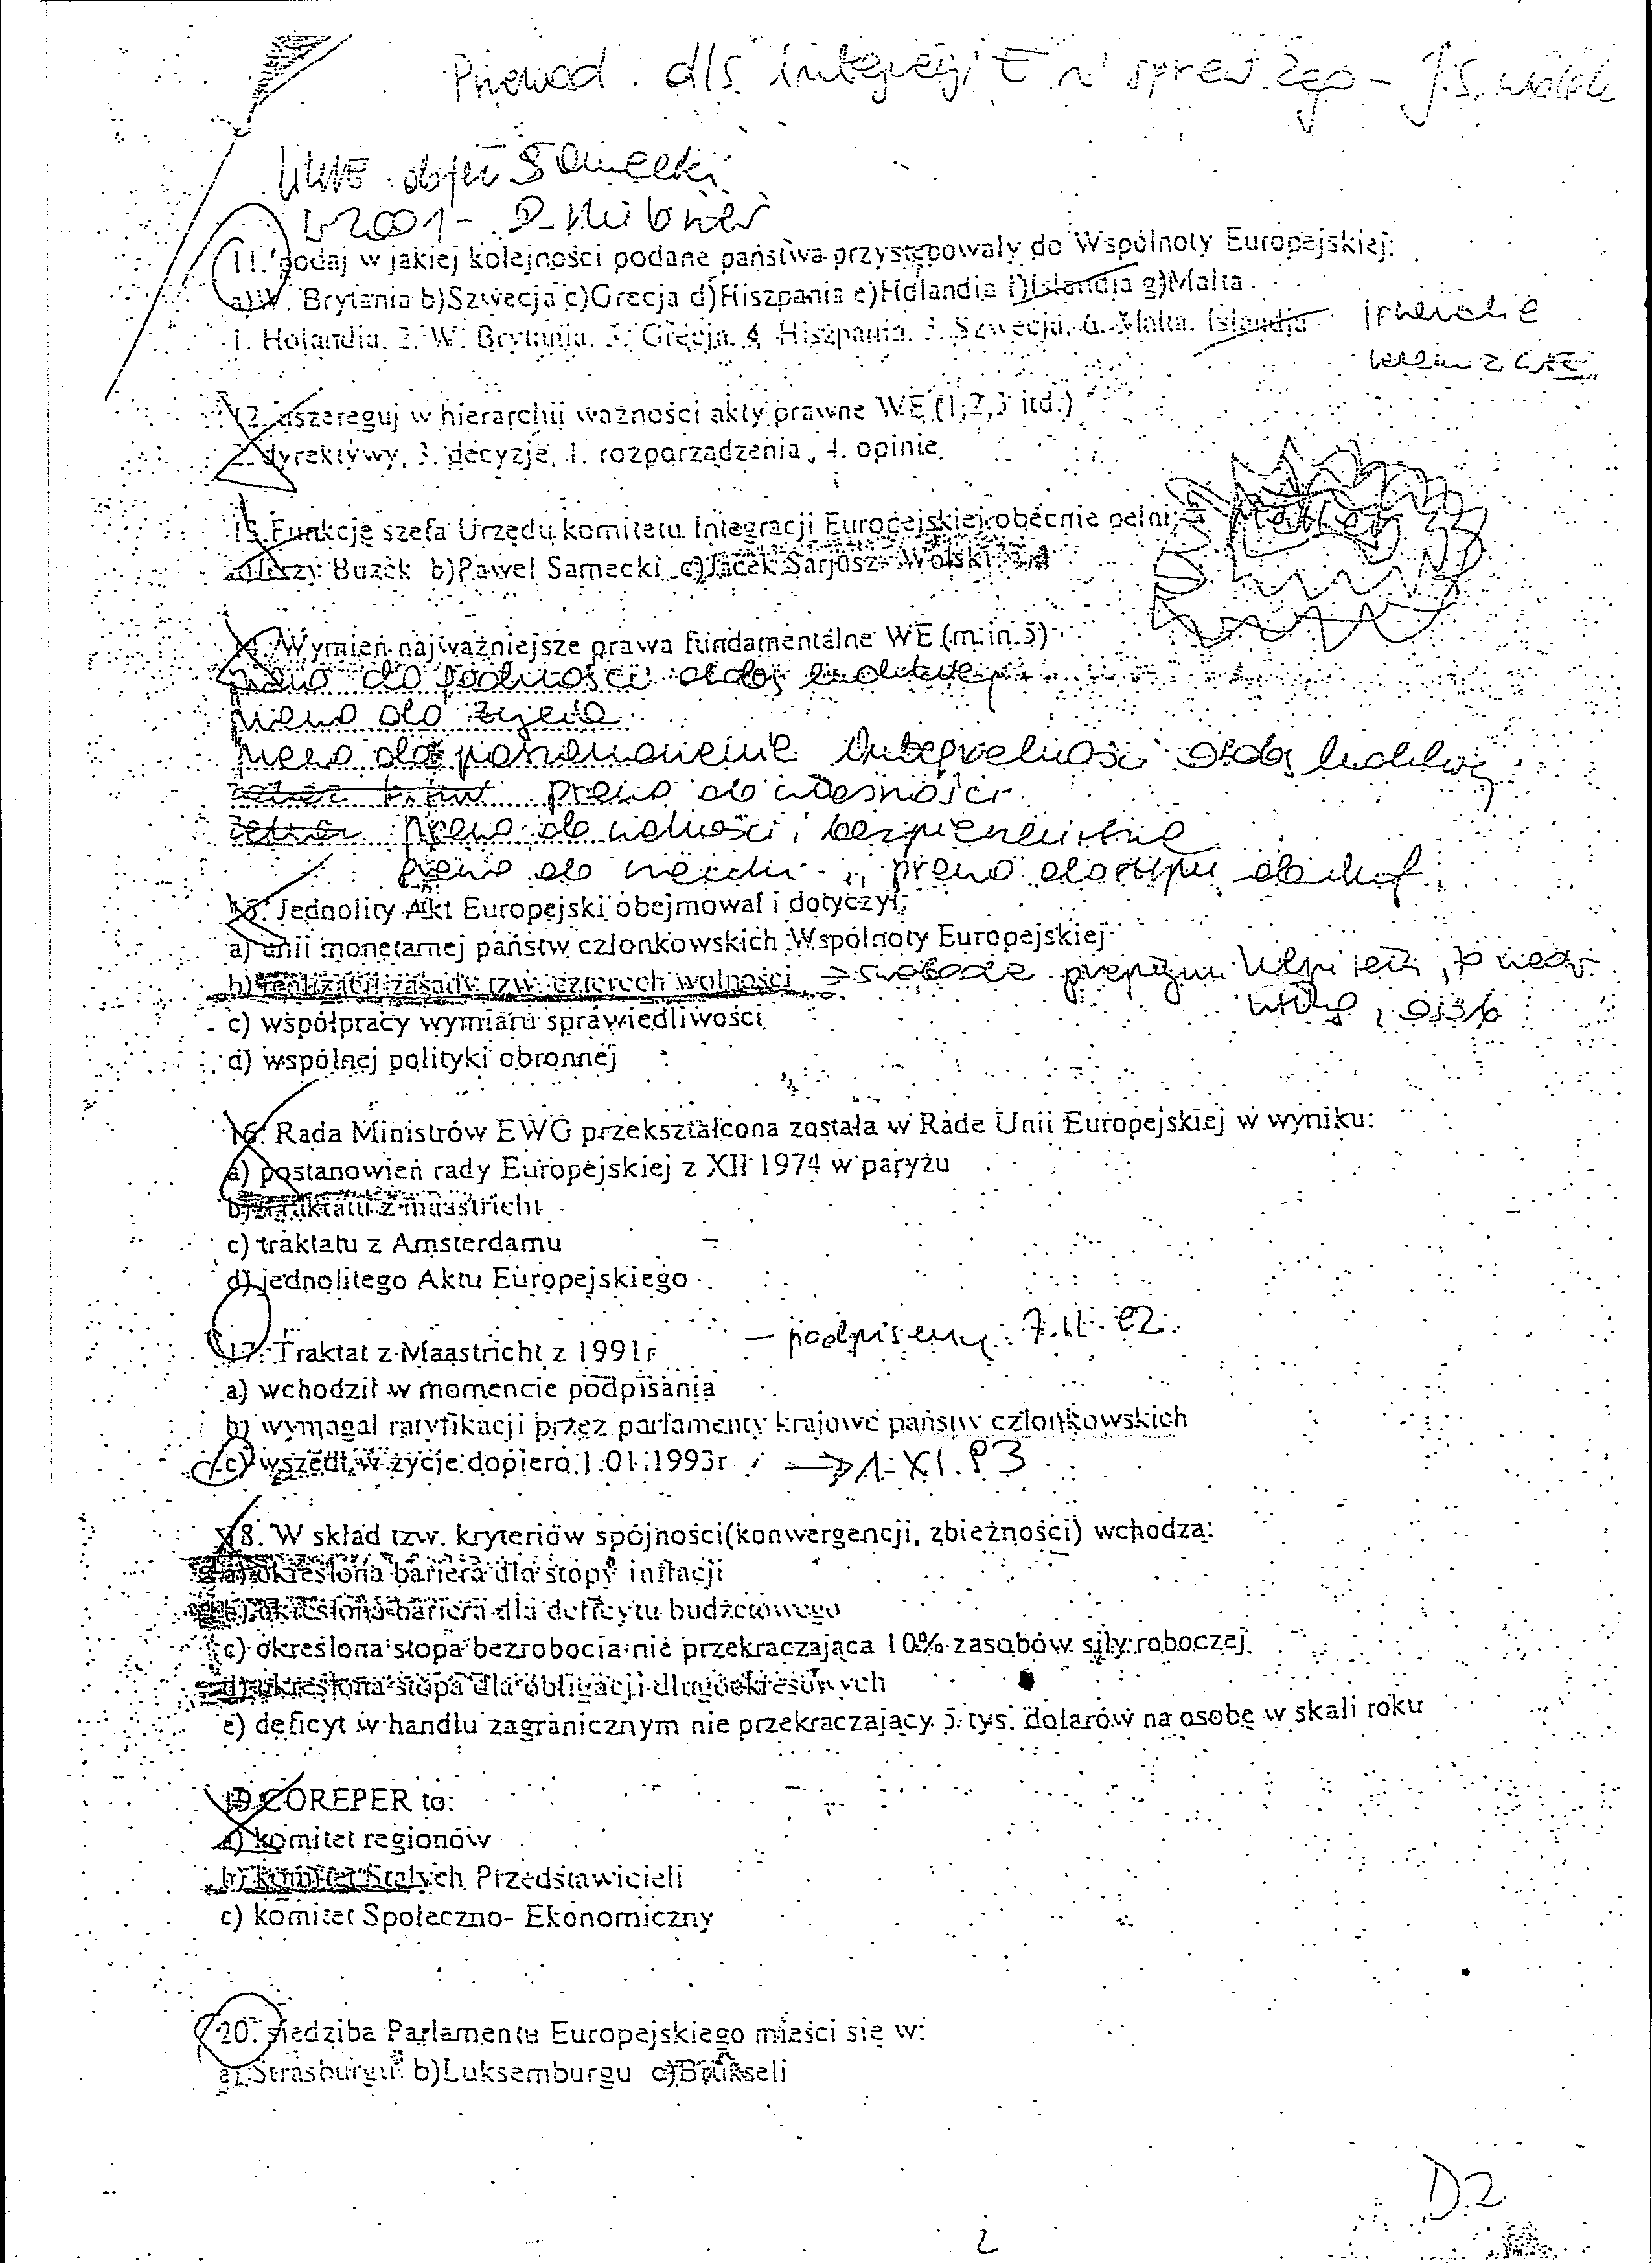 UKIE objął Samecki
2001 - D. Hübner
11. podaj w jakiej kolejności podane państwa przystępowały do Wspólnoty Europejskiej:
a)W. Brytania b)Szwecja c)Grecja d)Hiszpania e)Holandia f)Islandia g)Malta
1. Holandia. 2. W. Brytania. 3. Grecja. 4. Hiszpania. 5. Szwecja. 6. Malta. Islandia
12. uszereguj w hierarchii ważności akty prawne WE (1,2,3 itd.)
2. dyrektywy, 3. decyzje, 1. rozporządzenia, 4. opinie
13. Funkcję szefa Urzędu komitetu Integracji Europejskiej obecnie pełni:
a)Jerzy Buzek b)Paweł Samecki c)Jacek Sariusz- Wolski
14. Wymień najważniejsze prawa fundamentalne WE (m.in.5)
prawo do godności osoby ludzkiej
prawo do życia
prawo do poszanowania integralności osoby ludzkiej
prawo do własności
prawo do wolności i bezpieczeństwa
prawo do nauki prawo dostępu do dok.
15. Jednolity Akt Europejski obejmował i dotyczył:
a) unii monetarnej państw członkowskich Wspólnoty Europejskiej
b) realizacji zasady tzw. czterech wolności → swoboda przepływu kapitału, towarów
usług, osób
c) współpracy wymiaru sprawiedliwości
d) wspólnej polityki obronnej
16. Rada Ministrów EWG przekształcona została w Rade Unii Europejskiej w wyniku:
a) postanowień rady Europejskiej z XII 1974 w paryżu
b) traktatu z maastricht
c) traktatu z Amsterdamu
d) jednolitego Aktu Europejskiego
17. Traktat z Maastricht z 1991r - podpisany 7.II.92
a) wchodził w momencie podpisania
b) wymagał ratyfikacji przez parlamenty krajowe państw członkowskich
c) wszedł w życie dopiero 1.01.1993r → 1.XI.93
18. W skład tzw. kryteriów spójności(konwergencji, zbieżności) wchodzą:
a) określona bariera dla stopy inflacji
b) określona bariera dla deficytu budżetowego
c) określona stopa bezrobocia nie przekraczająca 10% zasobów siły roboczej
d) określona stopa dla obligacji długookresowych
e) deficyt w handlu zagranicznym nie przekraczający 5 tys. dolarów na osobę w skali roku
19. COREPER to:
a) komitet regionów
b) komitet Stałych Przedstawicieli
c) komitet Społeczno- Ekonomiczny
20. siedziba Parlamentu Europejskiego mieści się w:
a) Strasburgu b)Luksemburgu c)Brukseli
D.2
2